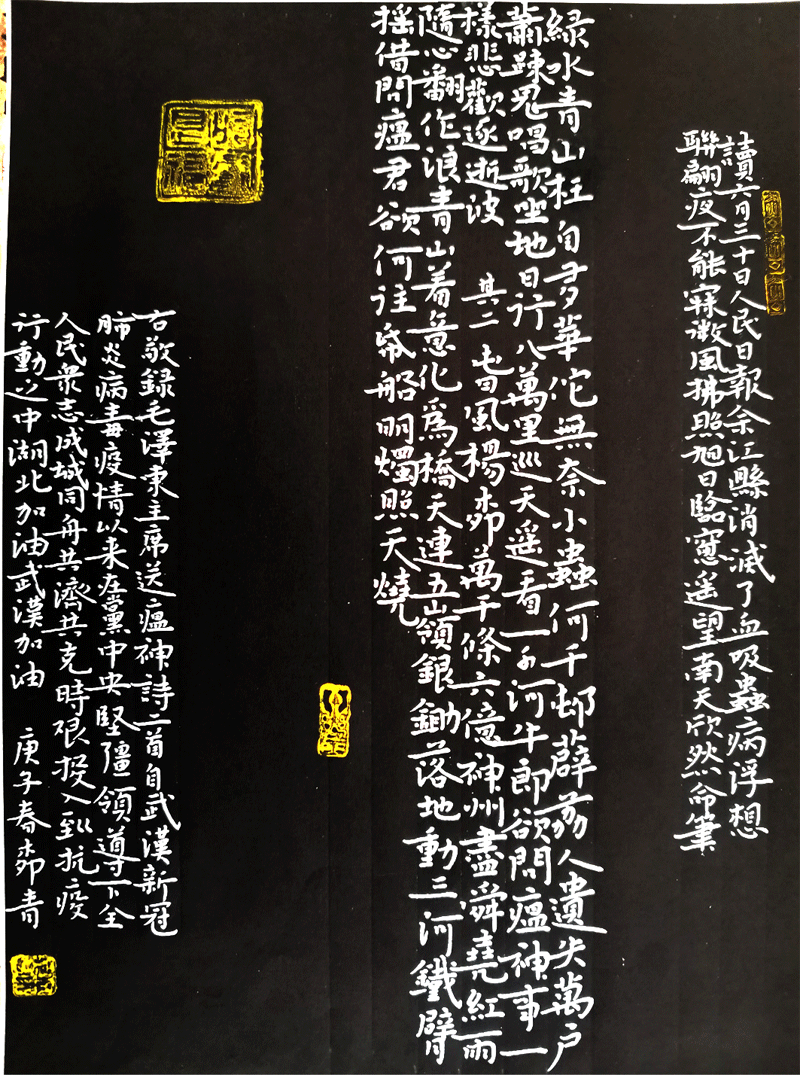 讀六月三十日人民日報余江縣消滅了血吸蟲病浮想
聯翩夜不能寐微風拂照旭日臨窻遥望南天欣然命筆
緑水青山枉自多華佗無奈小蟲何千邨薜荔人遺失萬户
蕭踈鬼唱歌坐地日行八萬里巡天遥看一千河牛郎欲問瘟神事一
樣悲歡逐逝波 其二 春風楊柳萬千條六億神州盡舜堯紅雨
隨心翻作浪青山着意化爲橋天連五嶺銀鋤落地動三河鐵臂
摇借問瘟君欲何往紙船明燭照天燒
右敬録毛澤東主席送瘟神詩二首自武漢新冠
肺炎病毒疫情以来在黨中央堅彊領導下全
人民衆志成城同舟共濟共克時艱投入到抗疫
行動之中湖北加油武漢加油 庚子春柳青